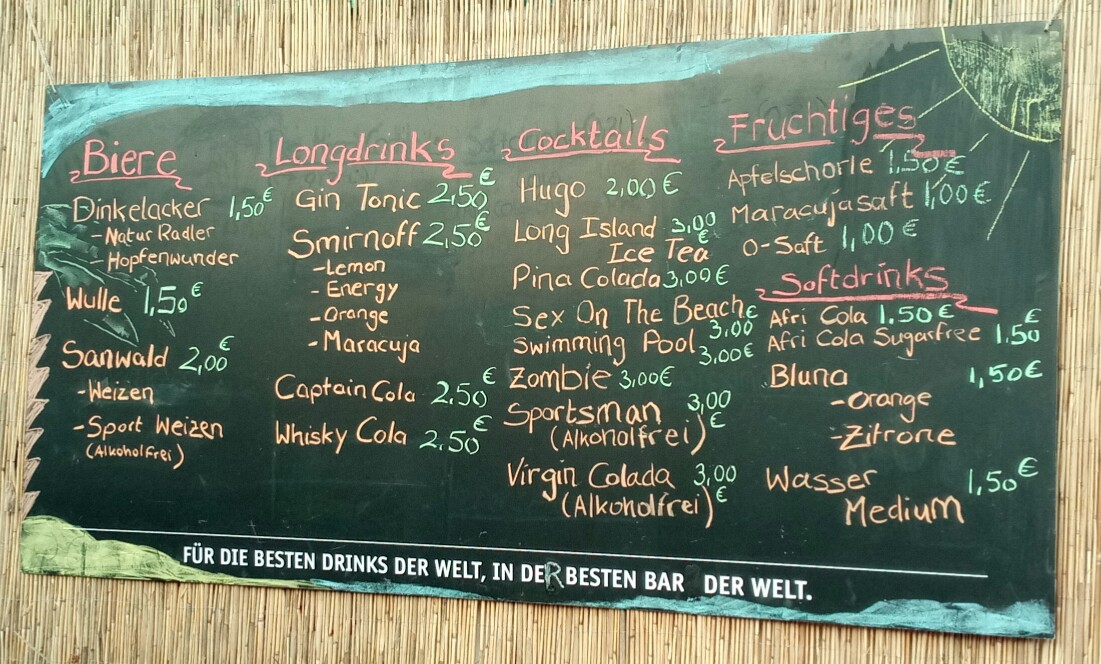 Biere
Dinkelacker 1,50€
-Natur Radler
-Hopfenwunder
Wulle 1,50€
Sanwald 2,00€
-Weizen
-Sport Weizen
(Alkoholfrei)
Longdrinks
Gin Tonic 2,50€
Smirnoff 2,50€
-Lemon
-Energy
-Orange
-Maracuja
Captain Cola 2.50€
Whisky Cola 2.50€
Cocktails
Hugo 2,00€
Long Island 3,00€
Ice Tea
Pina Colada 3,00€
Sex On The Beach 3,00€
Swimming Pool 3,00€
Zombie 3,00€
Sportsman 3,00€
(Alkoholfrei)
Virgin Colada 3,00€
(Alkoholfrei)
Fruchtiges
Apfelschorle 1,50€
Maracujasaft 1,00€
O-Saft 1,00€
Softdrinks
Afri Cola 1.50€
Afri Cola Sugarfree 1.50€
Bluna 1,50€
-Orange
-Zitrone
Wasser 1,50€
Medium
FÜR DIE BESTEN DRINKS DER WELT, IN DER BESTEN BAR DER WELT.